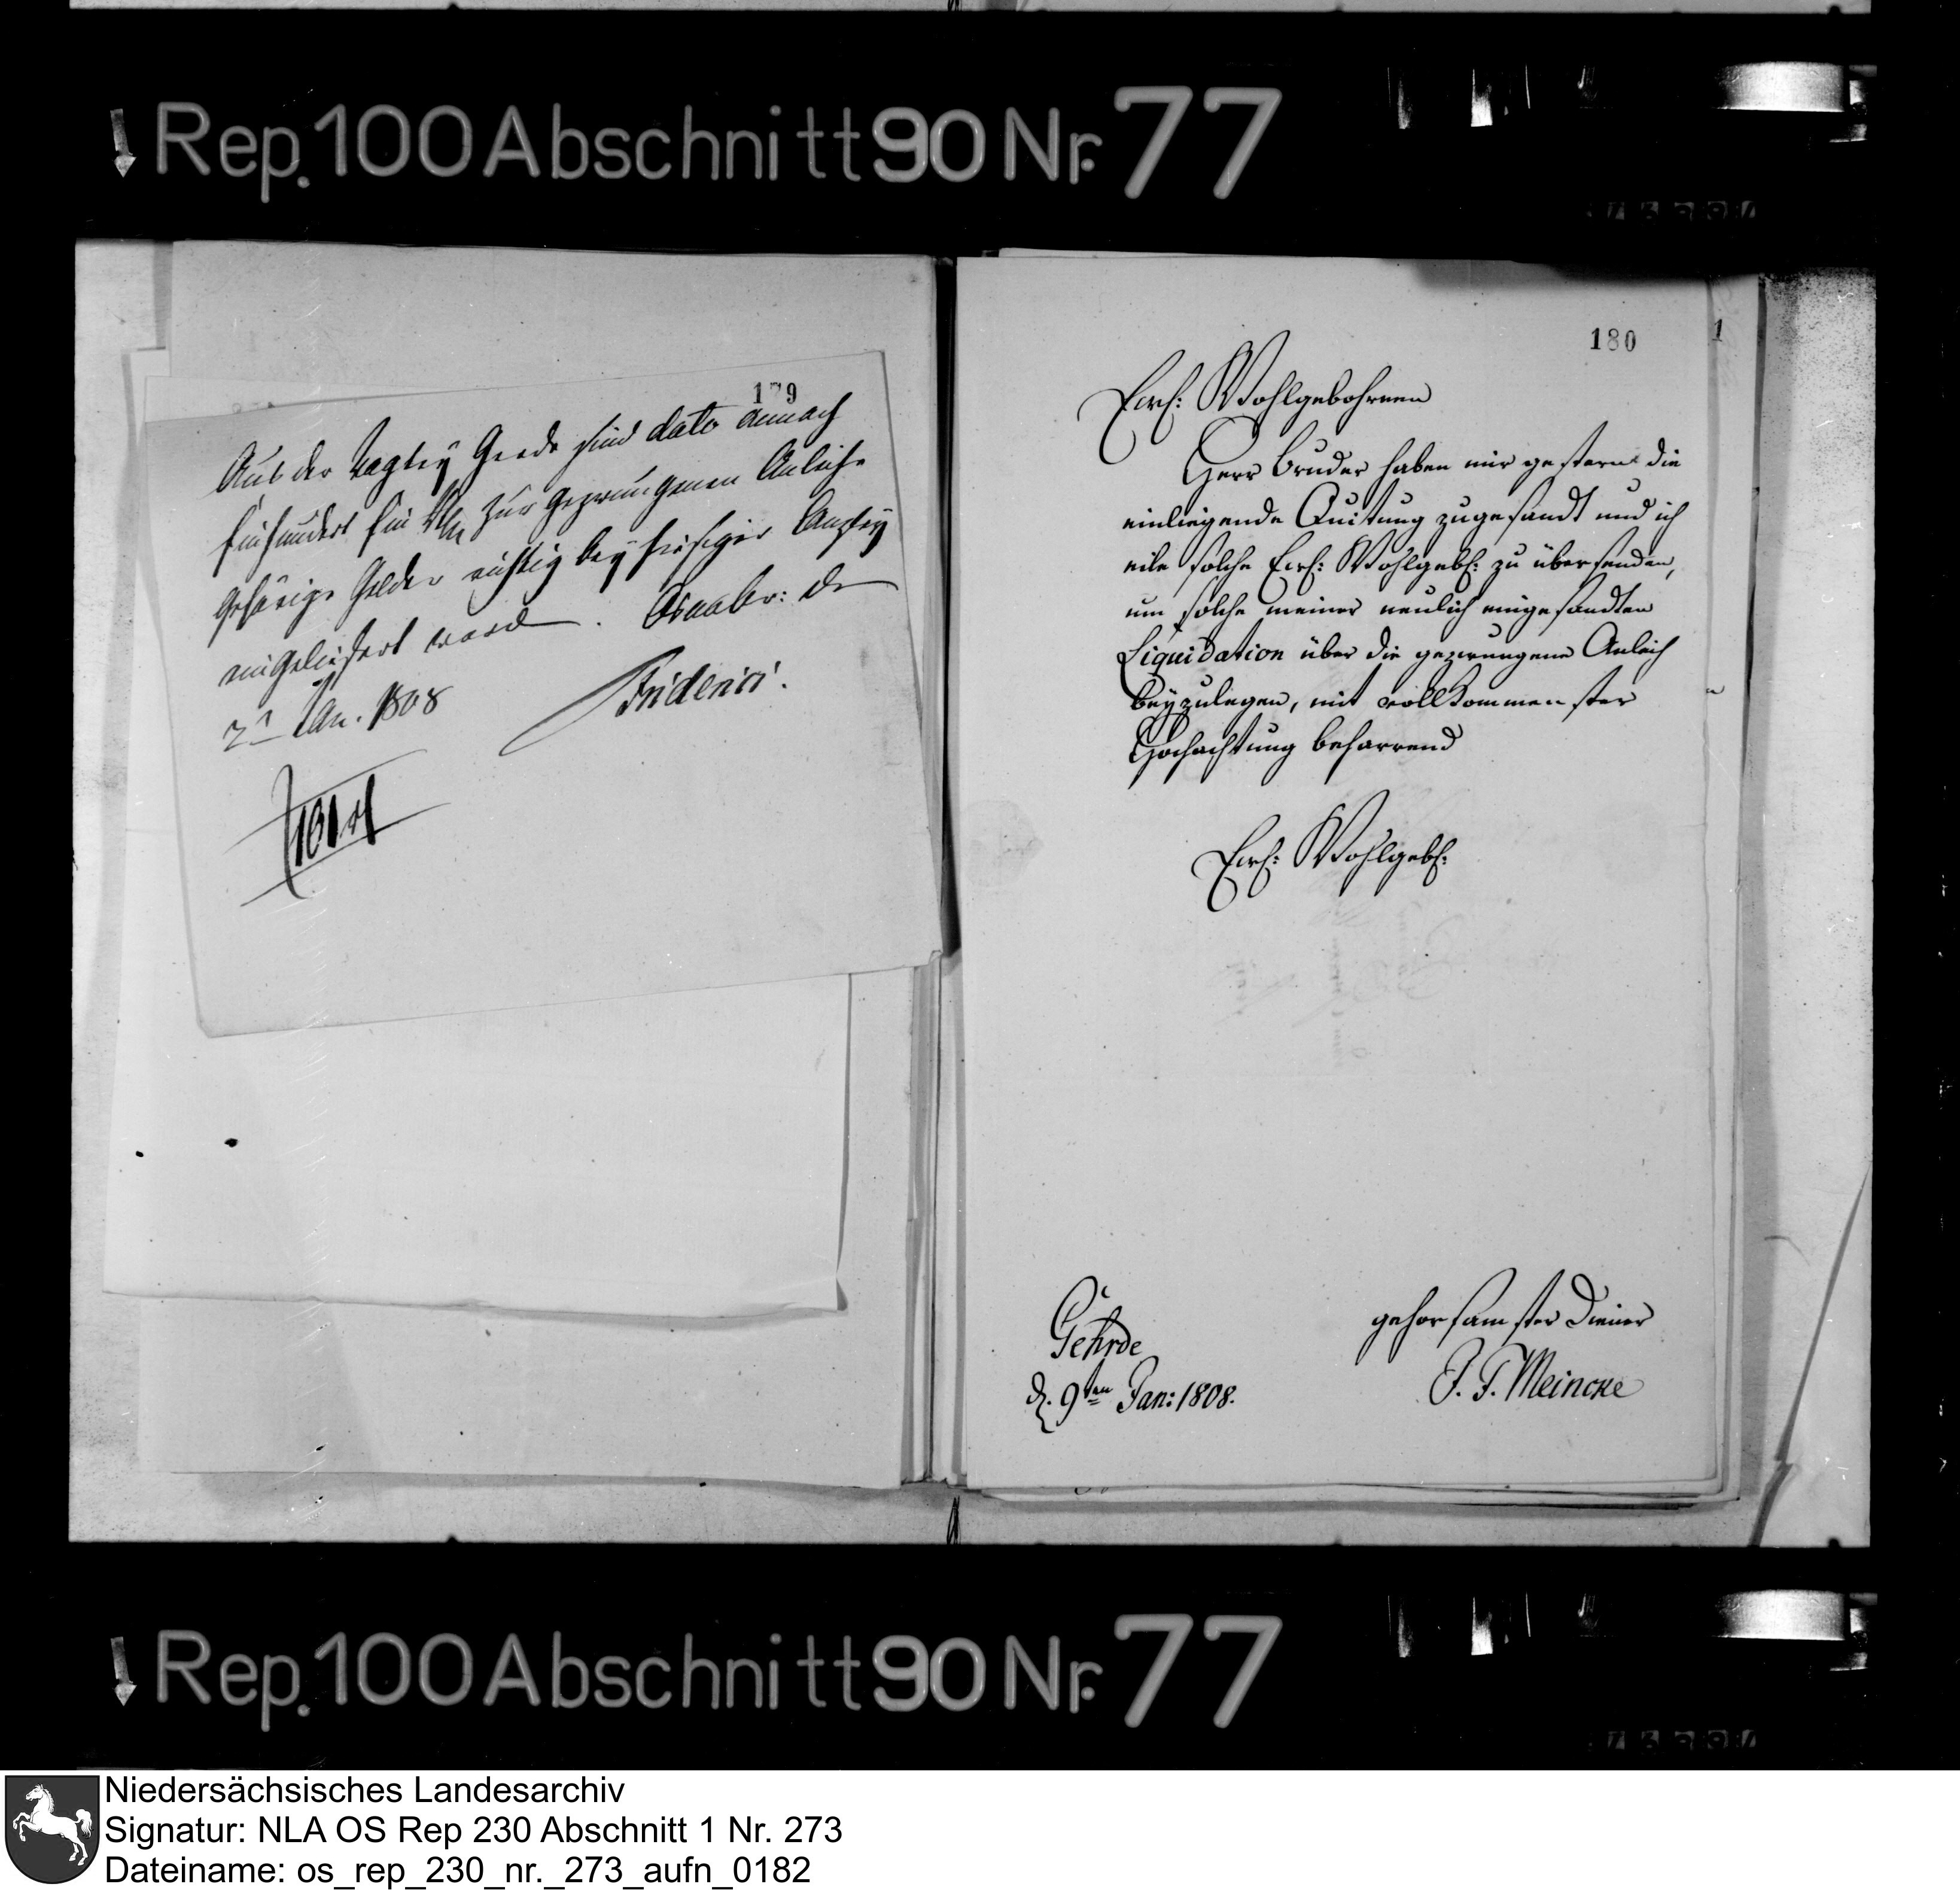 Rep. 100 Abschnitt 90 Nr. 77
179
Aus der Vogtey Gerde sind dato annoch
Einhundert Ein Rthlr zur gezwungenen Anleihe
gehörige Gelder richtig bey hiesiger Canzley
eingeliefert word. Osnabr: d
2t Jan. 1808
Friderici.
101 rt
180
1
Ewr: Wohlgebohrnen
Herr Bruder haben mir gestern die
einliegende Quitung zugesandt und ich
eile solche Ewr: Wohlgebh: zu übersenden,
um solche meiner neulich eingesandten
Liquidation über die gezwungene Anleih
beyzulegen, mit vollkommenster
Hochachtung beharrend
Ewr: Wohlgebh:
gehorsamster Diener
J. F. Meincke
Gehrde
d. 9ten Jan: 1808.
Rep. 100 Abschnitt 90 Nr. 77
Niedersächsisches Landesarchiv
Signatur: NLA OS Rep 230 Abschnitt 1 Nr. 273
Dateiname: os_rep_230_nr._273_aufn_0182